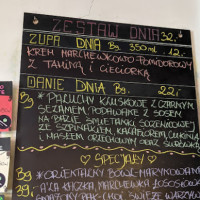 ZESTAW DNIA 32.-
ZUPA DNIA Bg. 350ml 12.-
KREM MARCHEWKOWO-POMIDOROWY
Z TAHINĄ I CIECIORKĄ
DANIE DNIA Bg. 22,-
* PALUCHY KLUSKOWE Z CZARNYM
SEZAMEM PODAWANE Z SOSEM
NA BAZIE ŚMIETANKI SOJOWEJ
ZE SZPINAKIEM, KALAFIOREM, CUKINIĄ
I MASŁEM ORZECHOWYM ORAZ SURÓWKĄ
SPECJAŁY
Bg * ORIENTALNY BOWL: MARYNOWANA
29,- A'LA KACZKA, MARCHEWKA ŁOSOSIOWA
ŚWIEŻE WARZYWA